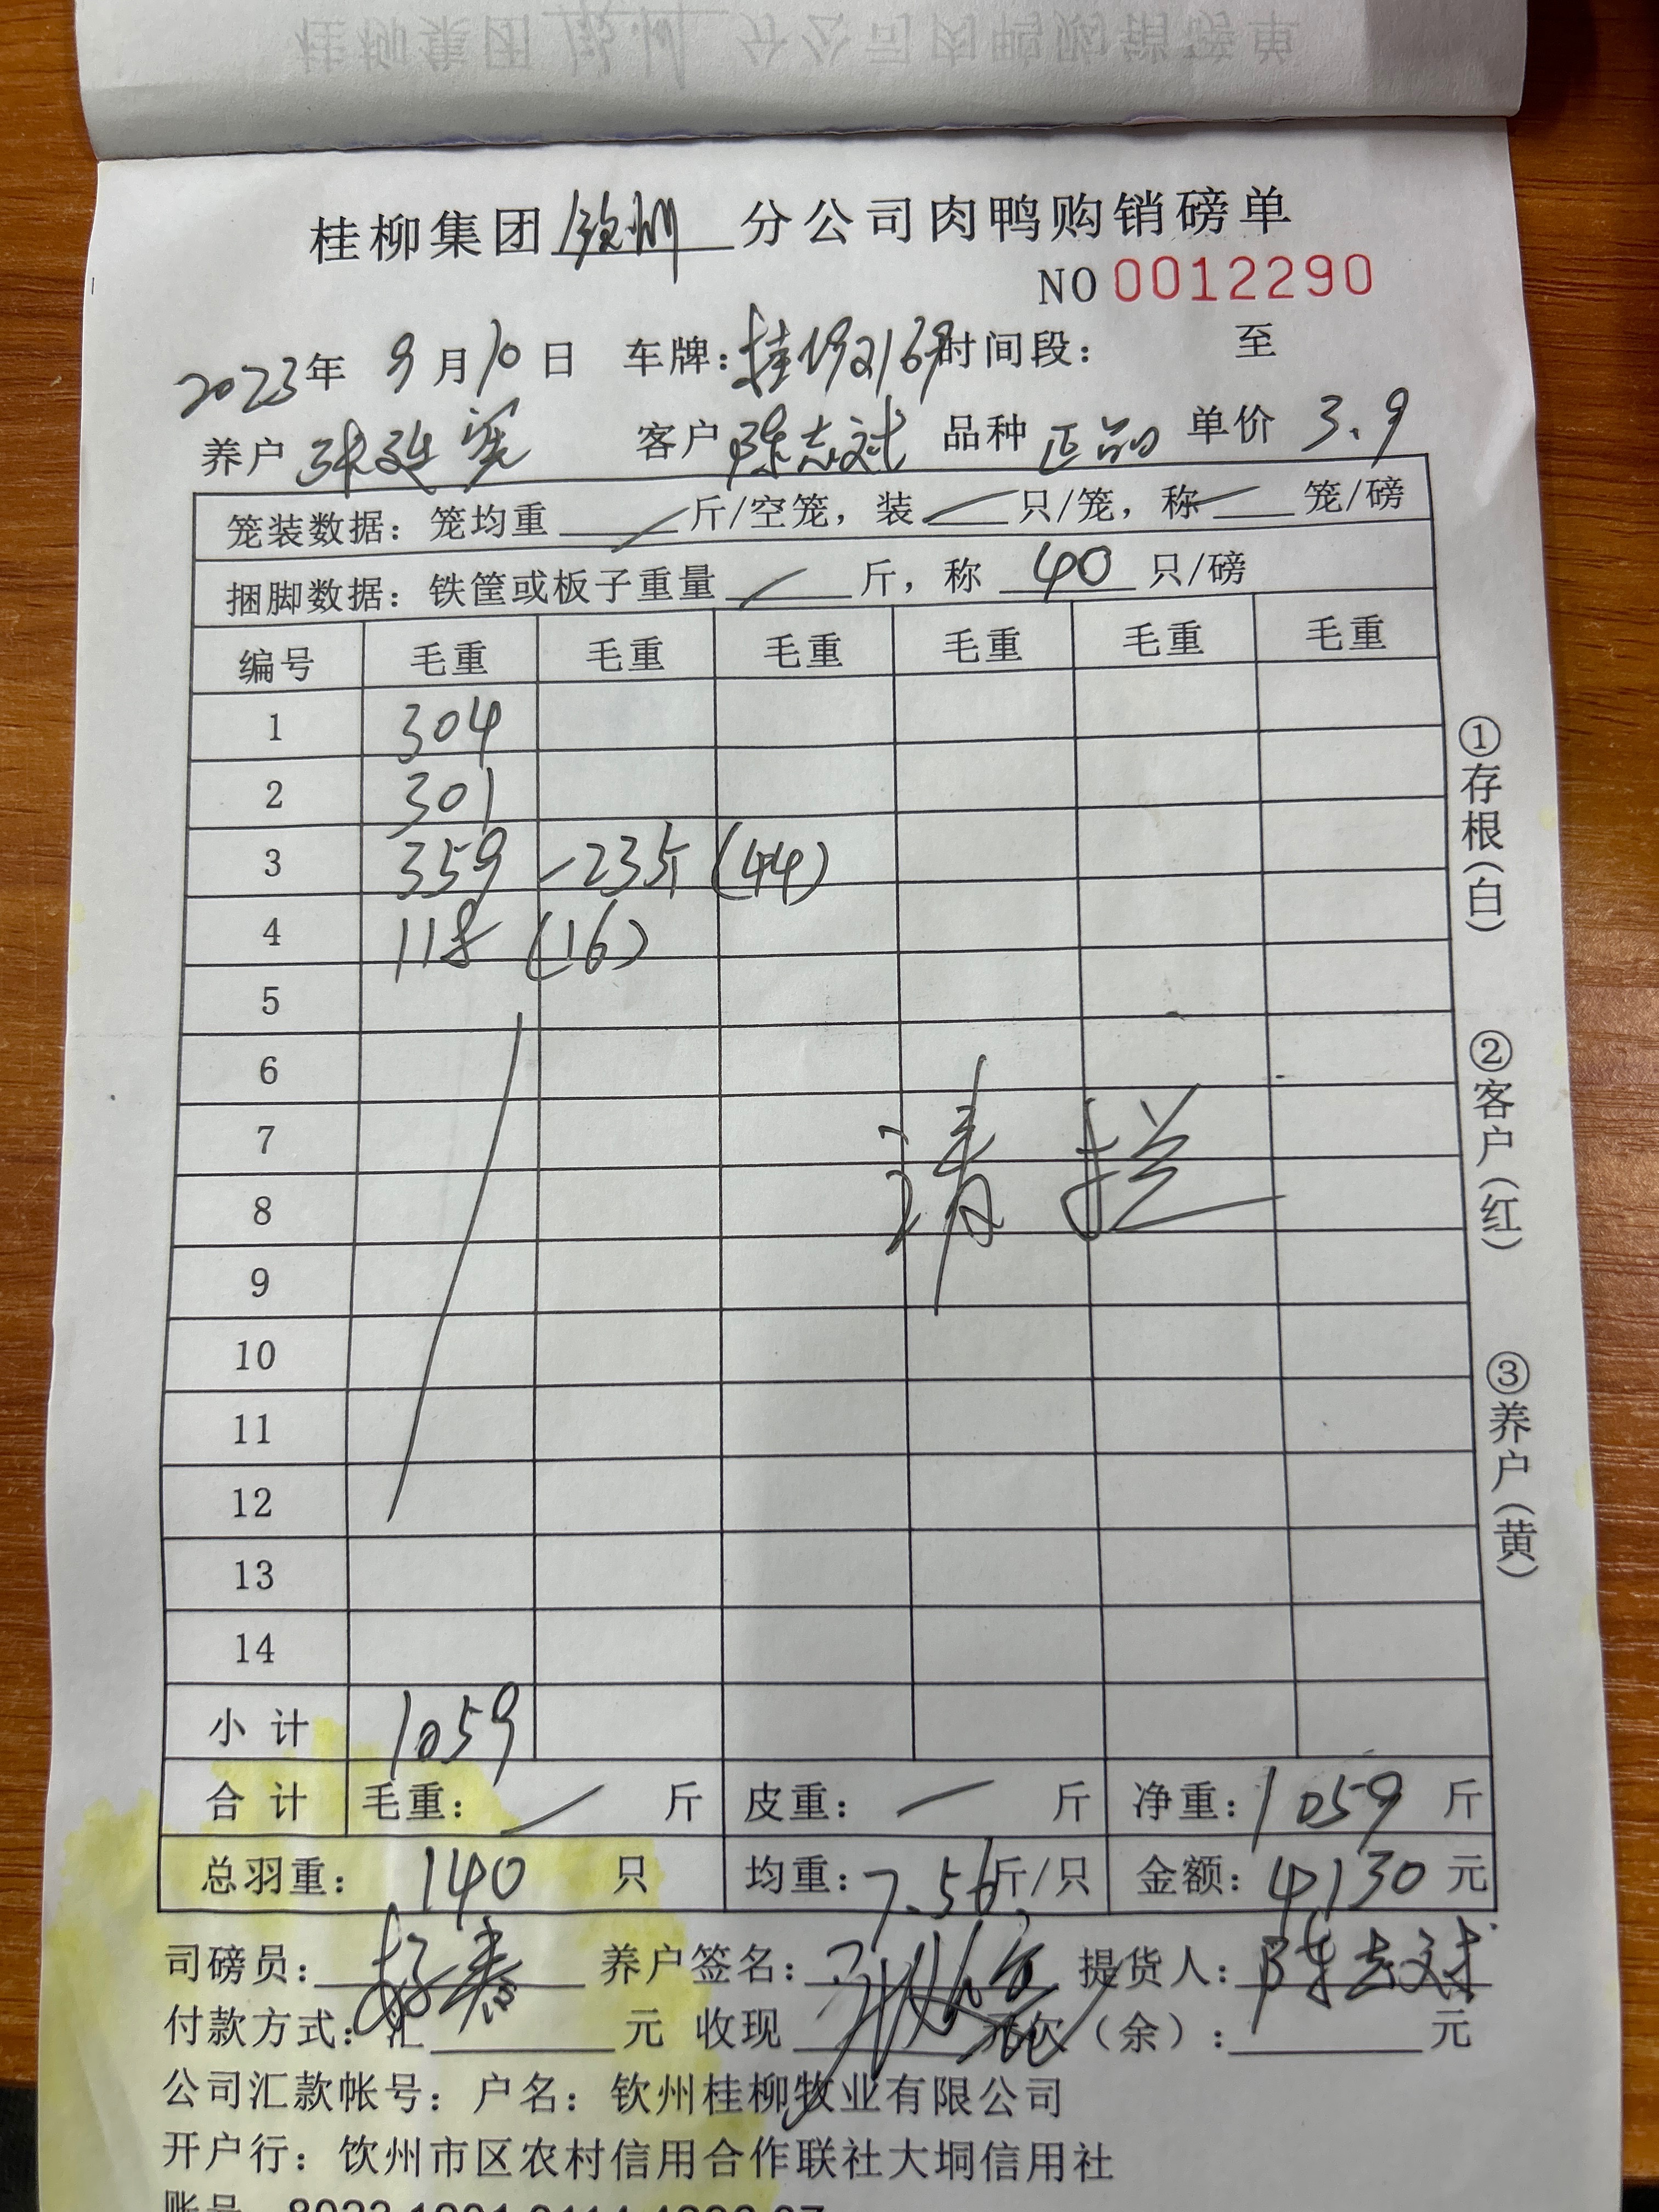 桂柳集团钦州分公司肉鸭购销磅单
NO 0012290
2023年 9月10日 车牌:桂 时间段: 至
养户 张廷宪 客户 陈志斌 品种 正品 单价 3.9
笼装数据: 笼均重 斤/空笼, 装 只/笼, 称 笼/磅
捆脚数据: 铁筐或板子重量 斤, 称 40 只/磅
编号 毛重 毛重 毛重 毛重 毛重 毛重
1 304
2 301
3 359 -23斤 (44)
4 118 (16)
5
6
7
8
清 栏
9
10
11
12
13
14
小 计 1059
合 计 毛重: 斤 皮重: 斤 净重: 1059 斤
总羽重: 140 只 均重: 7.56 斤/只 金额: 4130 元
司磅员: 养户签名: 提货人: 陈志斌
付款方式: 汇 元 收现 元欠(余): 元
公司汇款帐号: 户名: 钦州桂柳牧业有限公司
开户行: 钦州市区农村信用合作联社大垌信用社
账号
①存根(白)
②客户(红)
③养户(黄)